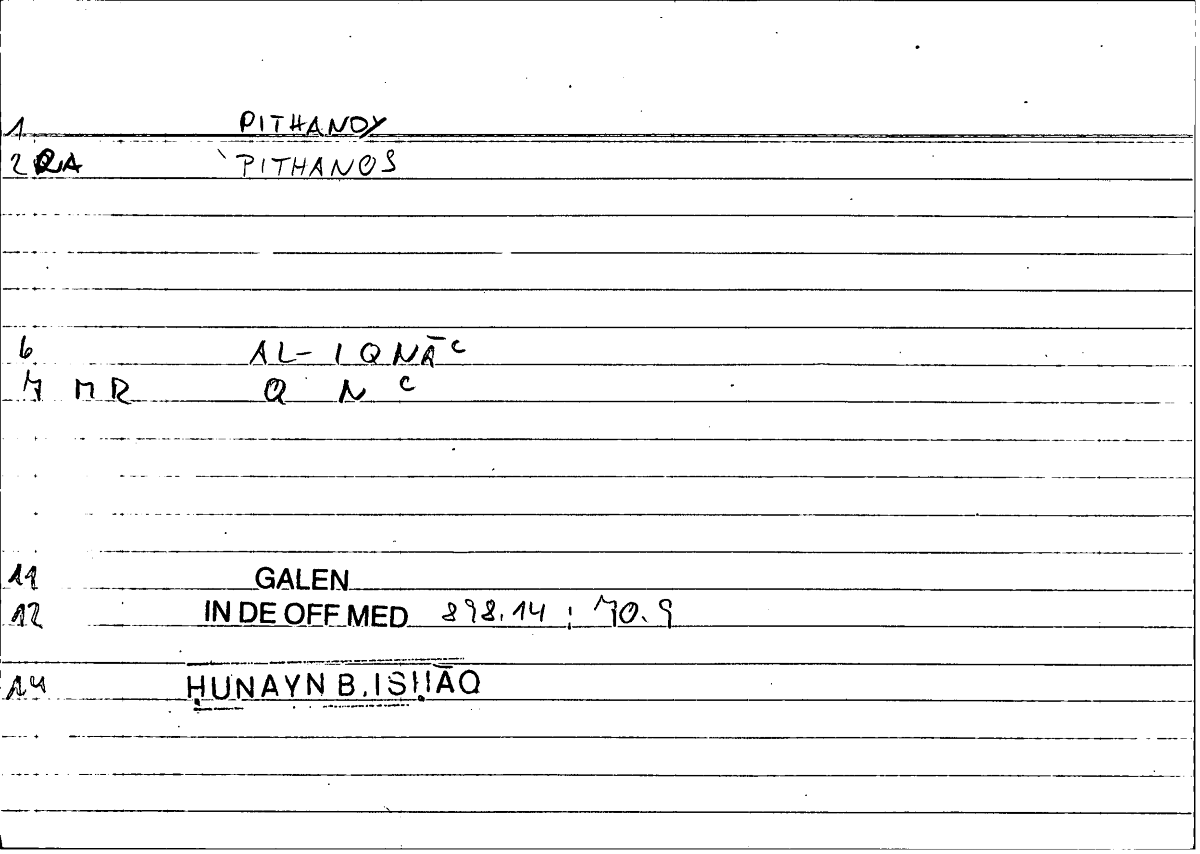 1 PITHANOY
2 QA PITHANOS
6 AL-IQNĀʿ
7 MR Q N ʿ
11 GALEN
12 IN DE OFF MED 898.14 ; 70.9
14 ḤUNAYN B. ISḤĀQ